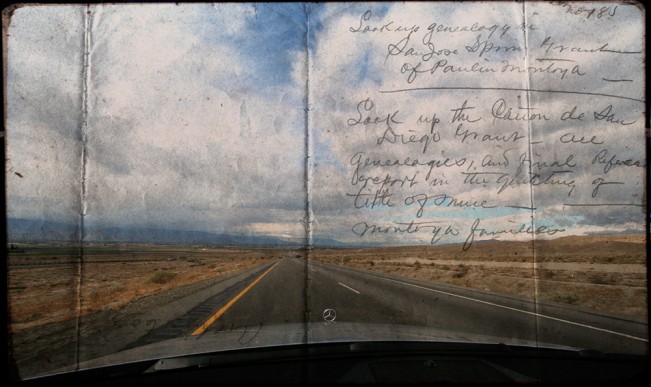 Look up genealogy in
San Jose Spring Grant
of Paulin Montoya
Look up the Cañon de San
Diego Grant - all
genealogies, and final Referee
report in the quieting of
title of mine
Montoya families